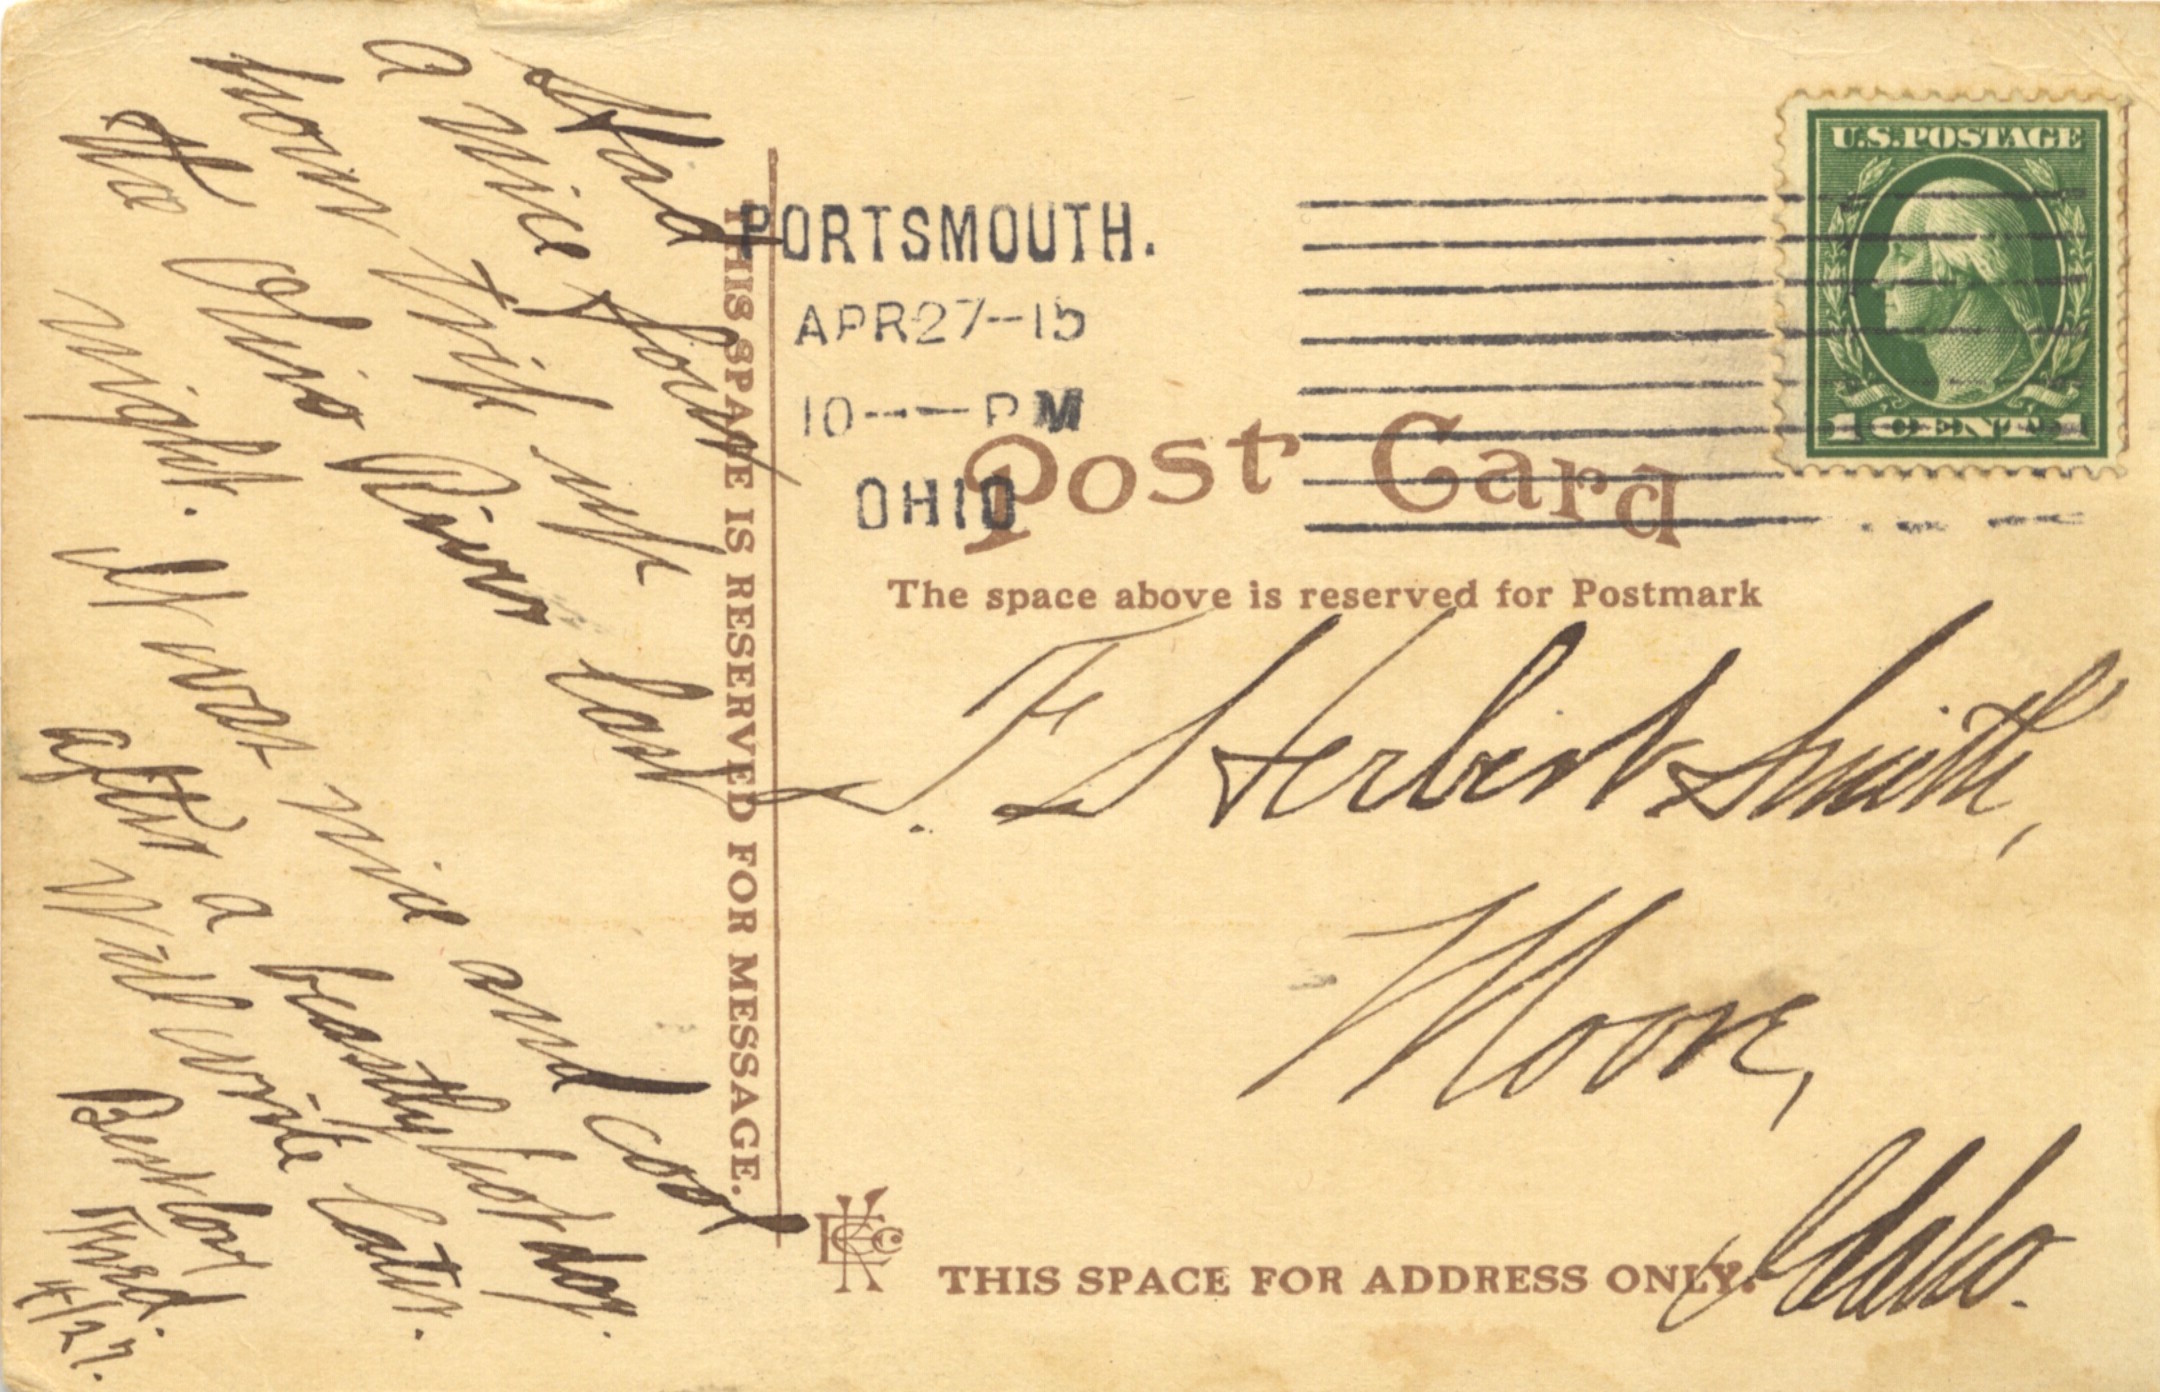 Had
a nice four
hour trip up
the Ohio River last
night. It was nice and cool
after a beastly hot day.
Will write later.
Best love
Ferd.
4/27.
THIS SPACE IS RESERVED FOR MESSAGE.
PORTSMOUTH.
APR 27--15
10---PM
OHIO
U.S. POSTAGE
1 CENT 1
Post Card
The space above is reserved for Postmark
F. Herbert Smith,
Moore,
Idaho.
THIS SPACE FOR ADDRESS ONLY.